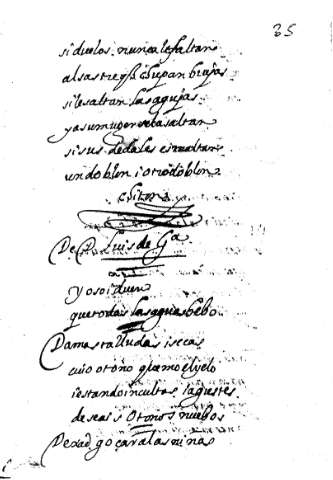 35
si duelos nunca le faltan
al sastre q̃ chupan brujas
si le saltan las agujas
y a su muger se la saltan
si sus dedales esmaltan
un doblon i otro doblon
chiton
De D. Luis de Gª
Yo soi duen
que todas las aguas bebo
Damas talludas i secas
cuio otoño quemo el yelo
i estando incultas i agrestes
deseais otoños nuebos
Dexad goçar a las ninas